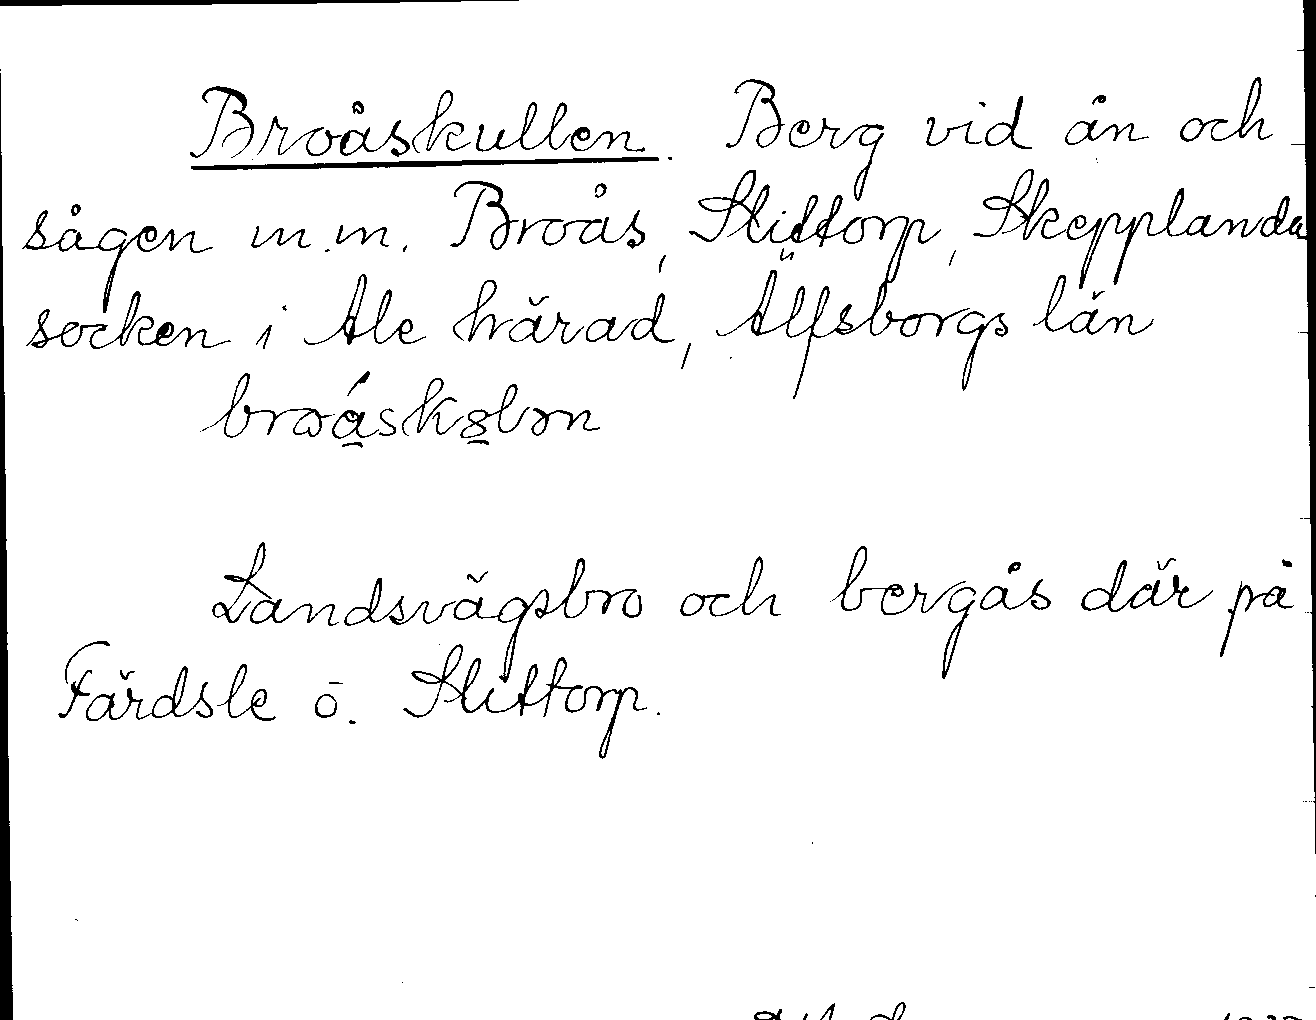 Broåskullen. Berg vid ån och
sågen m.m. Broås, Slittorp, Skepplanda
socken i Ale härad, Älfsborgs län

Landsvägsbro och bergås där på
Färdsle ö. Slittorp.